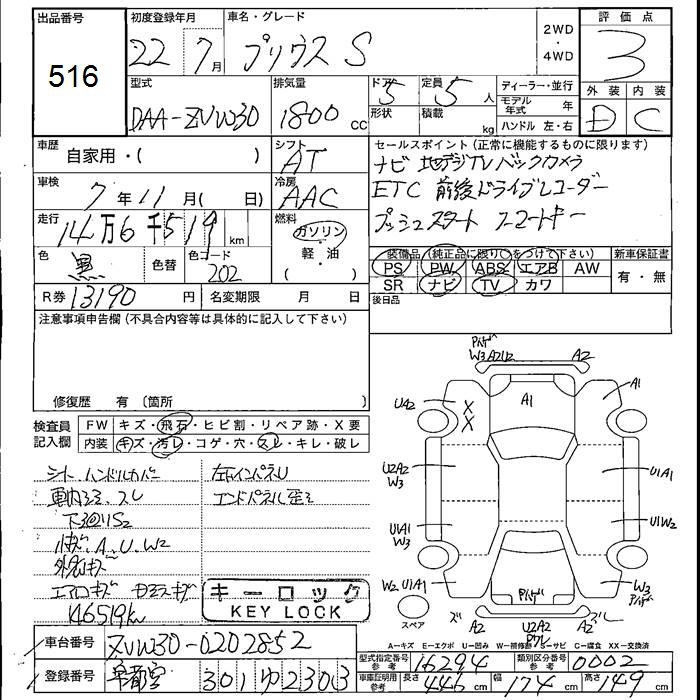 出品番号 初度登録年月 車名・グレード 2WD ・ 4WD 評価点
516 22 7月 プリウス S 3
型式 排気量 ドア 定員 ディーラー・並行 外装 内装
DAA-ZVW30 1800 cc 5 5人 モデル年式 年 D C
形状 積載 kg ハンドル 左・右
車歴 自家用・( ) シフト AT
セールスポイント (正常に機能するものに限ります)
ナビ 地デジTV バックカメラ
車検 7年11月( 日) 冷房 AAC
ETC 前後ドライブレコーダー
走行 14万6千519 km 燃料 ガソリン・軽・油
プッシュスタート スマートキー
色 黒 色替 色コード 202
装備品 (純正品に限り○をつけて下さい) 新車保証書
PS PW ABS エアB AW 有・無
SR ナビ TV カワ
R券 13190円 名変期限 月 日
後日品
注意事項申告欄 (不具合内容等は具体的に記入して下さい)
修復歴 有 (箇所
検査員記入欄 FW キズ・飛石・ヒビ割・リペア跡・X要
内装 キズ・汚レ・コゲ・穴・スレ・キレ・破レ
シート、ハンドルカバー
エンドパネル歪ミ
車内ヨゴレ、スレ
小キズ、A、U、W2
146519km
キーロック
KEY LOCK
W3 A2U2 A2
A1 A1
UA2 X X
U2A2 W3 U1A1
U1A1 W3 U1W2
W2 U1A1 W3
スペア A2 U2A2 A2
A-キズ E-エクボ U-凹み W-補修跡 S-サビ C-腐食 XX-交換済
車台番号 ZVW30-0202852
型式指定番号 参考 16294 類別区分番号 参考 0002
登録番号 宇都宮 301 ゆ 2303
車庫証明用 参考 長さ 446 cm 幅 174 cm 高さ 149 cm